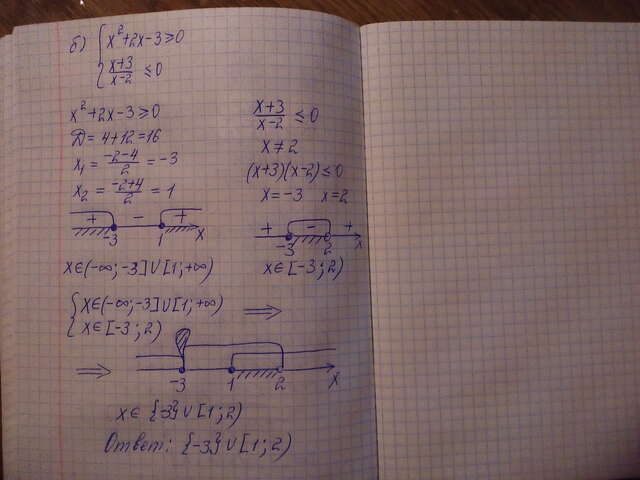 б) { x²+2x-3≥0
{ x+3/x-2 ≤0
x²+2x-3≥0
D=4+12=16
x₁= -2-4/2 =-3
x₂= -2+4/2 =1
+ - +
-3 1 x
x∈(-∞;-3]∪[1;+∞)
x+3/x-2 ≤0
x≠2
(x+3)(x-2)≤0
x=-3 x=2
+ - +
-3 2 x
x∈[-3;2)
{ x∈(-∞;-3]∪[1;+∞)
{ x∈[-3;2) ⟹
⟹ -3 1 2 x
x∈{-3}∪[1;2)
Ответ: {-3}∪[1;2)